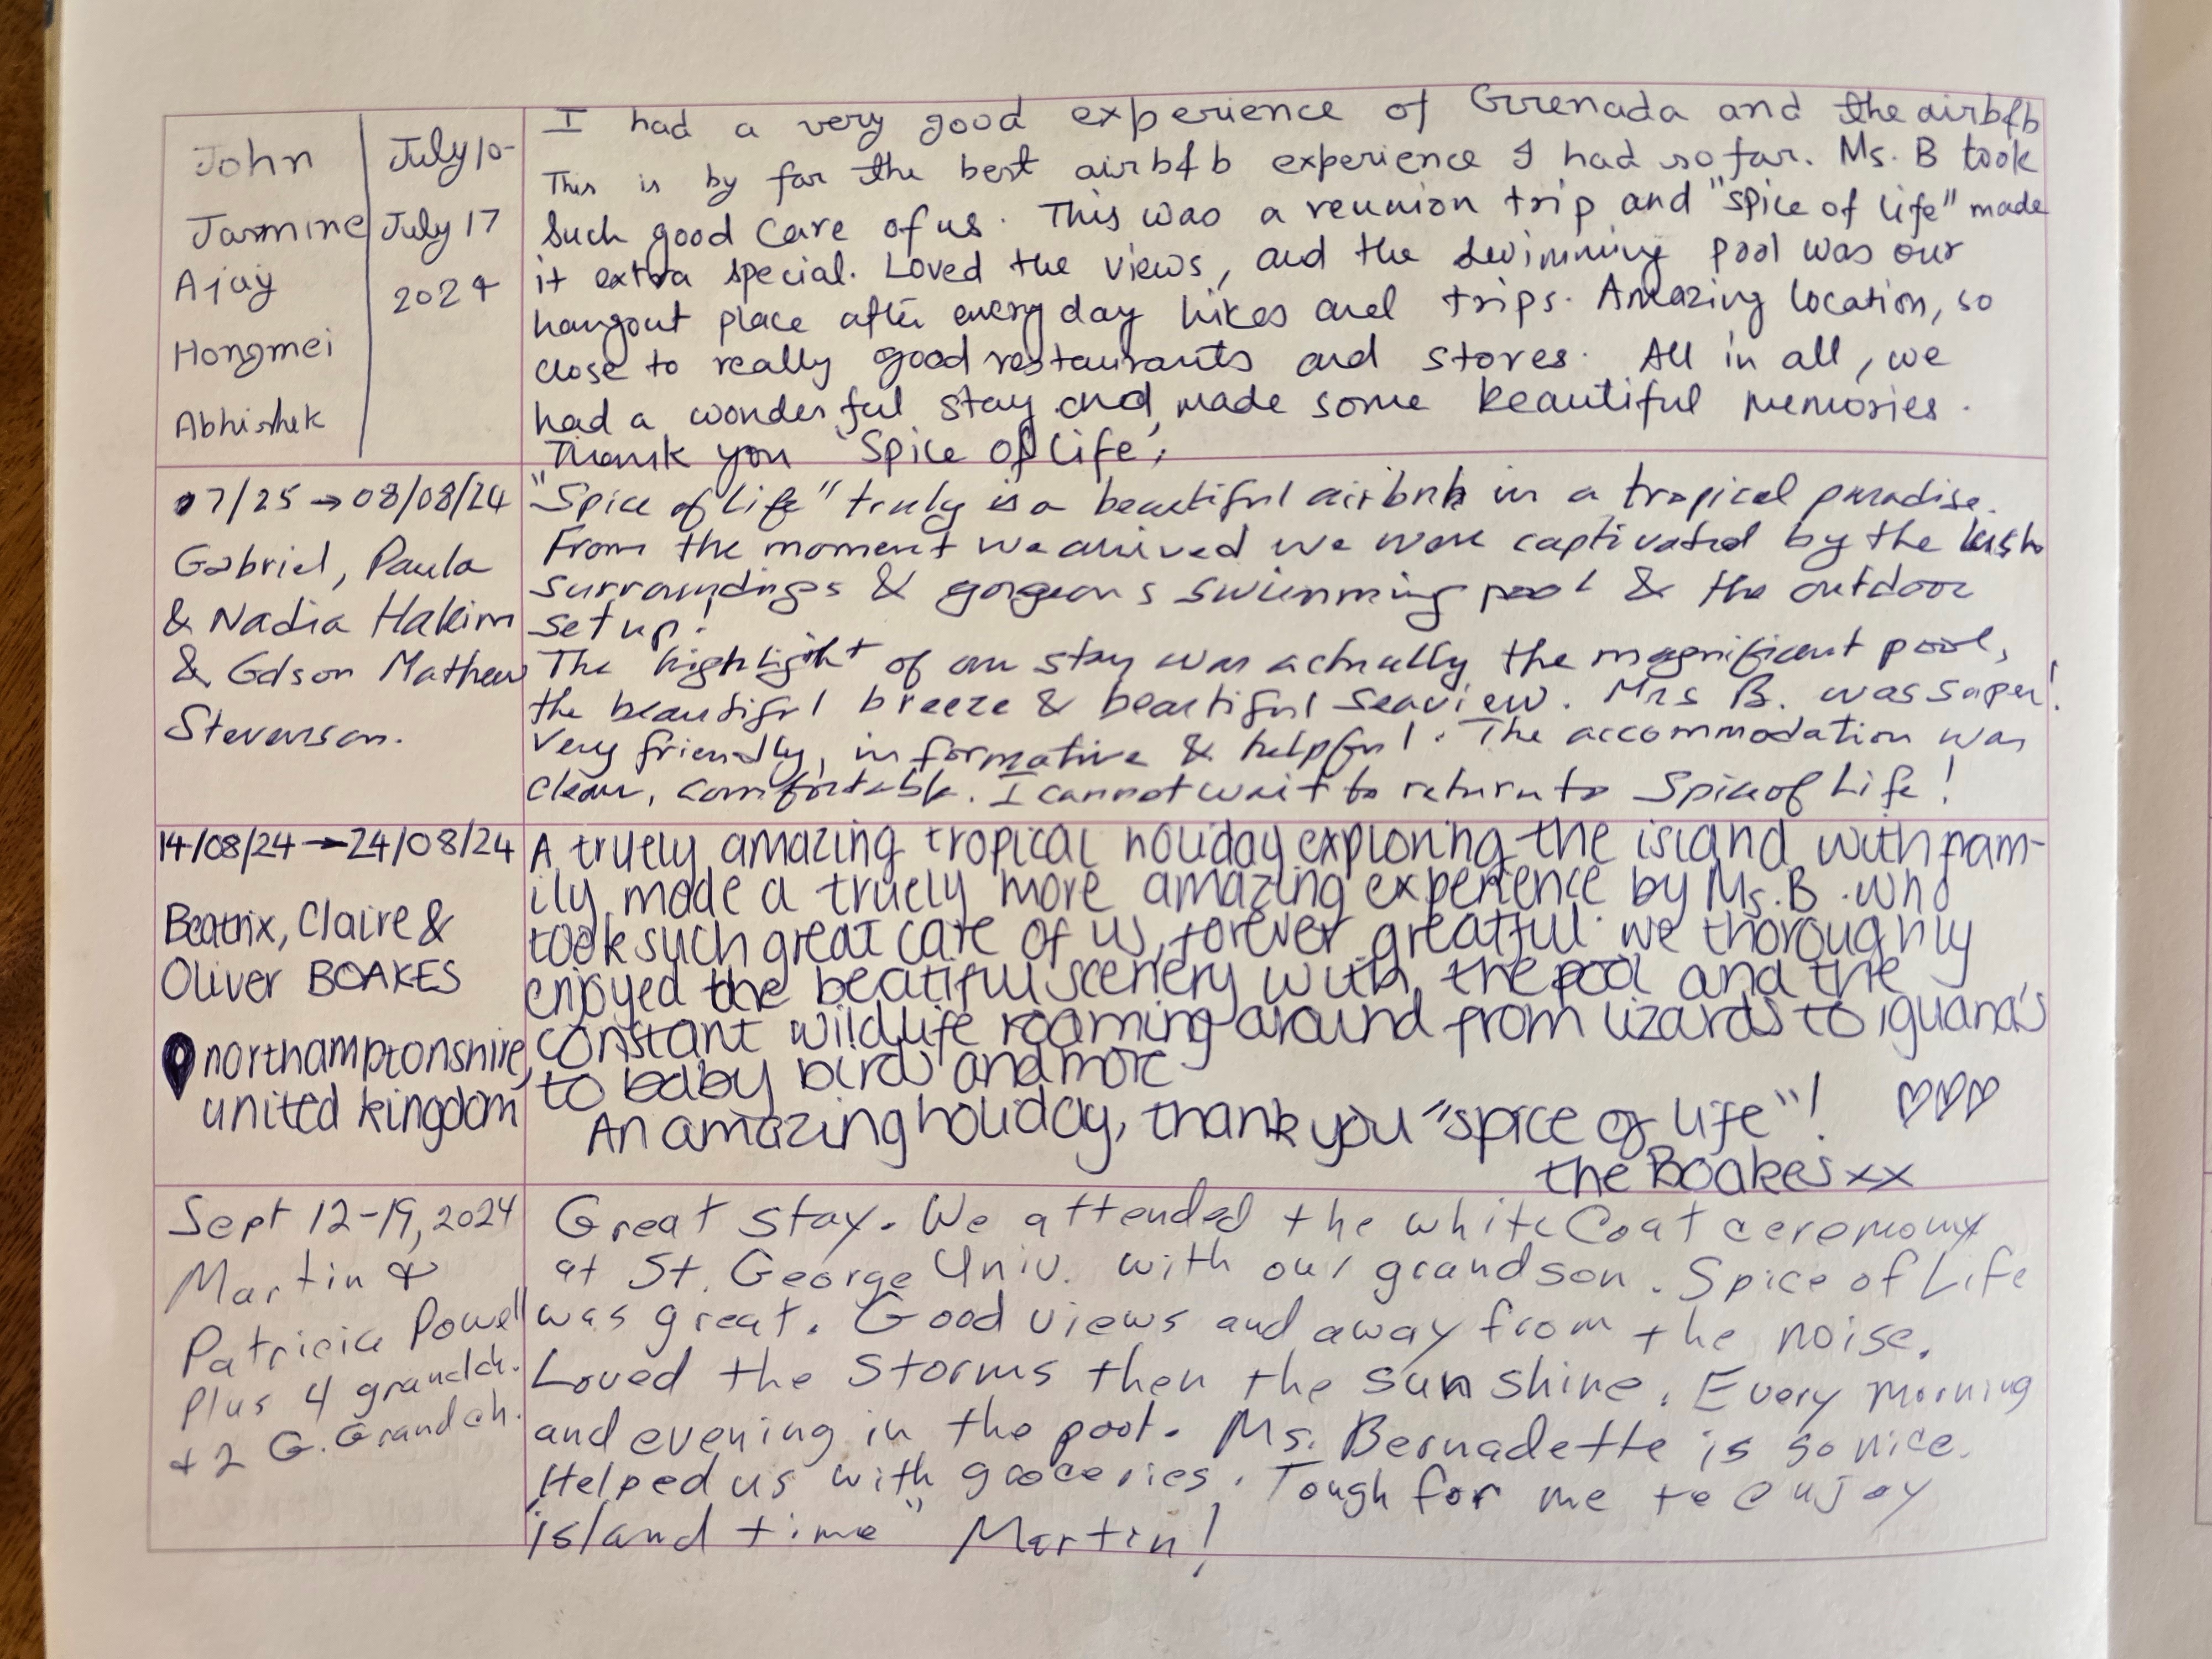 John
Jasmine
Ajay
Hongmei
Abhishek
July 10-
July 17
2024
I had a very good experience of Grenada and the airb&b
This is by far the best airb&b experience I had so far. Ms. B took
such good care of us. This was a reunion trip and "spice of life" made
it extra special. Loved the views, and the swimming pool was our
hangout place after every day hikes and trips. Amazing location, so
close to really good restaurants and stores. All in all, we
had a wonderful stay and made some beautiful memories.
Thank you 'Spice of Life',
07/25 → 08/08/24
Gabriel, Paula
& Nadia Hakim
& Edson Mathew
Stevenson.
"Spice of Life" truly is a beautiful airbnb in a tropical paradise.
From the moment we arrived we were captivated by the lush
surroundings & gorgeous swimming pool & the outdoor
set up!
The highlight of our stay was actually the magnificent pool,
the beautiful breeze & beautiful seaview. Mrs B. was super!
Very friendly, informative & helpful. The accommodation was
clean, comfortable. I cannot wait to return to Spice of Life!
14/08/24 → 24/08/24
Beatrix, Claire &
Oliver BOAKES
northamptonshire,
united kingdom
A truely amazing tropical holiday exploring the island with fam-
ily made a truely more amazing experience by Ms. B. who
took such great care of us, forever greatful. we thoroughly
enjoyed the beatiful scenery with the pool and the
constant wildlife roaming around from lizards to iguana's
to baby birds and more
An amazing holiday, thank you "spice of life"! ♡♡♡
the Boakes xx
Sept 12-19, 2024
Martin &
Patricia Powell
Plus 4 grandch.
+ 2 G. Grandch.
Great stay. We attended the white Coat ceremony
at St. George Univ. with our grandson. Spice of Life
was great. Good views and away from the noise.
Loved the storms then the sunshine. Every morning
and evening in the pool. Ms. Bernadette is so nice.
Helped us with groceries. Tough for me to enjoy
"island time" Martin!